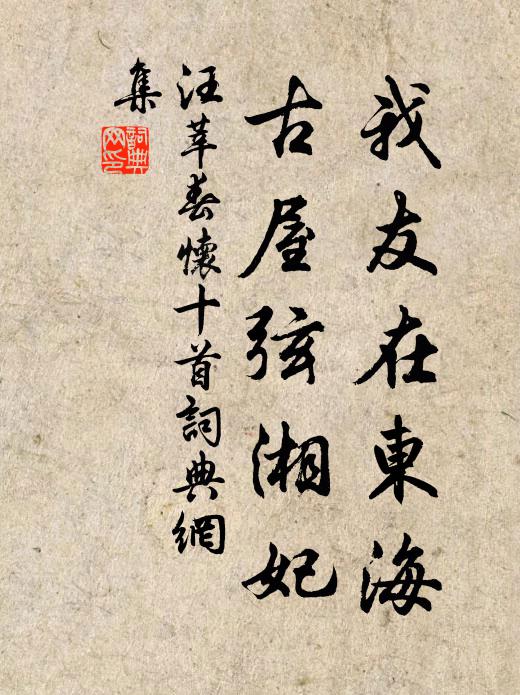 我友在東海
古屋弦湘妃
汪莘春懷十首詞典網
集
詞典網印